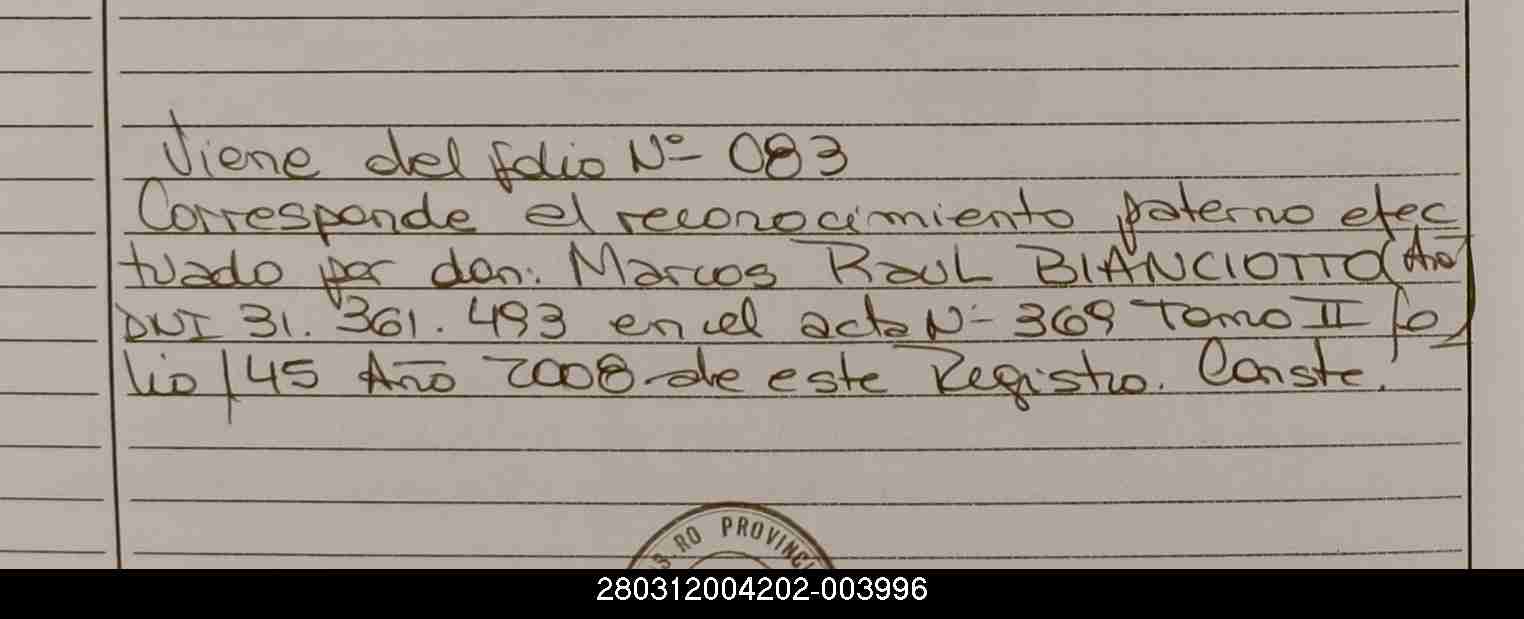 Viene del folio Nº 083
Corresponde el reconocimiento paterno efec
tuado por don: Marcos Raul BIANCIOTTO (Año
DNI 31.361.493 en el acta Nº 369 Tomo II fo
lio 145 Año 2008 de este Registro. Conste.
RO PROVINC
280312004202-003996